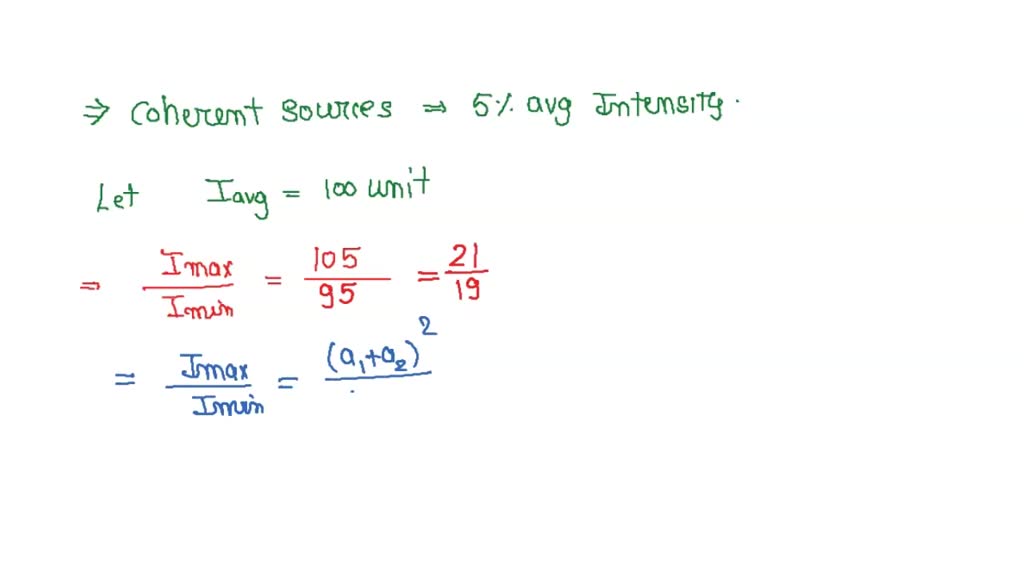 ⇒ Coherent sources ⇒ 5% avg Intensity.
Let Iavg = 100 unit
= Imax/Imin = 105/95 = 21/19
= Imax/Imin = (a₁+a₂)²